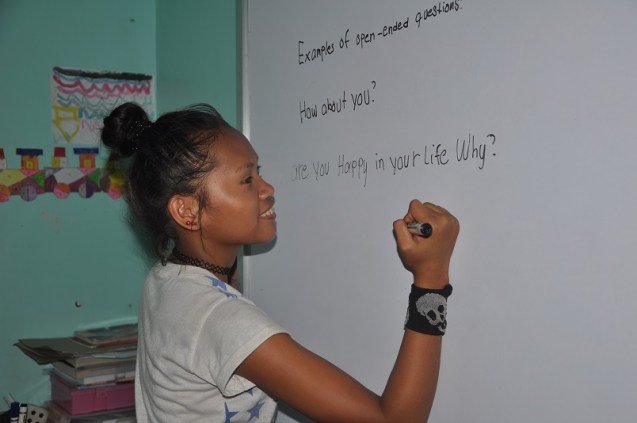 Examples of open-ended questions.
How about you?
are you Happy in your Life Why?